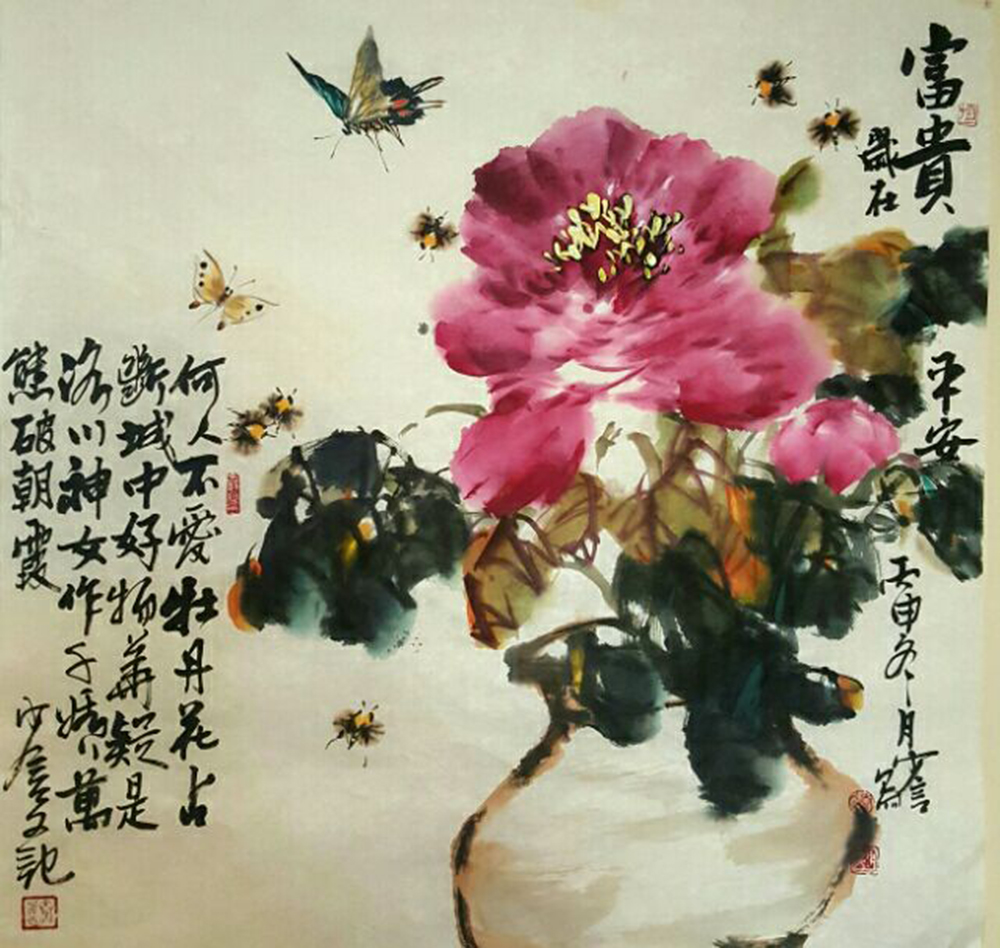 富貴平安
歲在壬申冬月少詹寫
何人不愛牡丹花占
斷城中好物華疑是
洛川神女作千嬌萬
態破朝霞
少詹又記